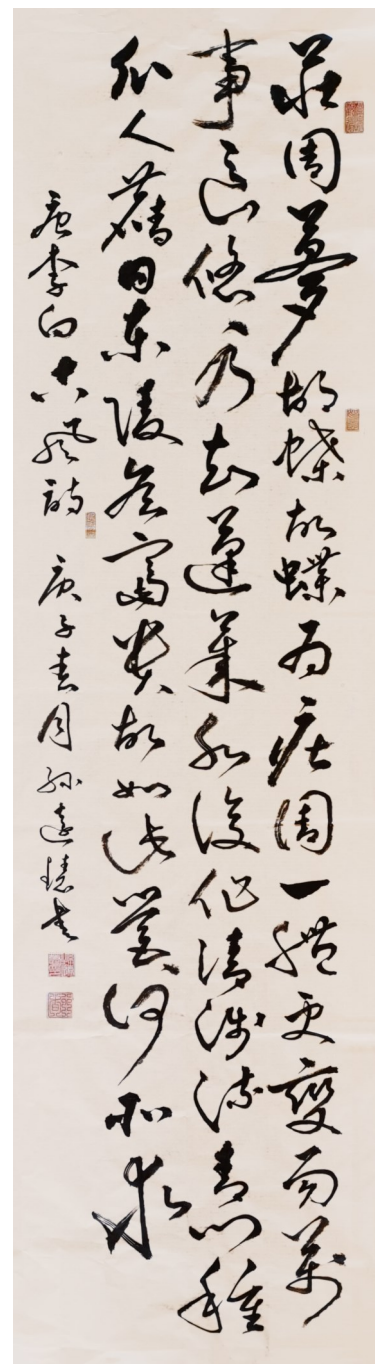 莊周夢胡蝶胡蝶為莊周一體更變易萬
事良悠乃知蓬萊水復作清淺流青門種
瓜人舊日東陵侯富貴故如此營何所求
唐李白古風詩 庚子春月孫遠書